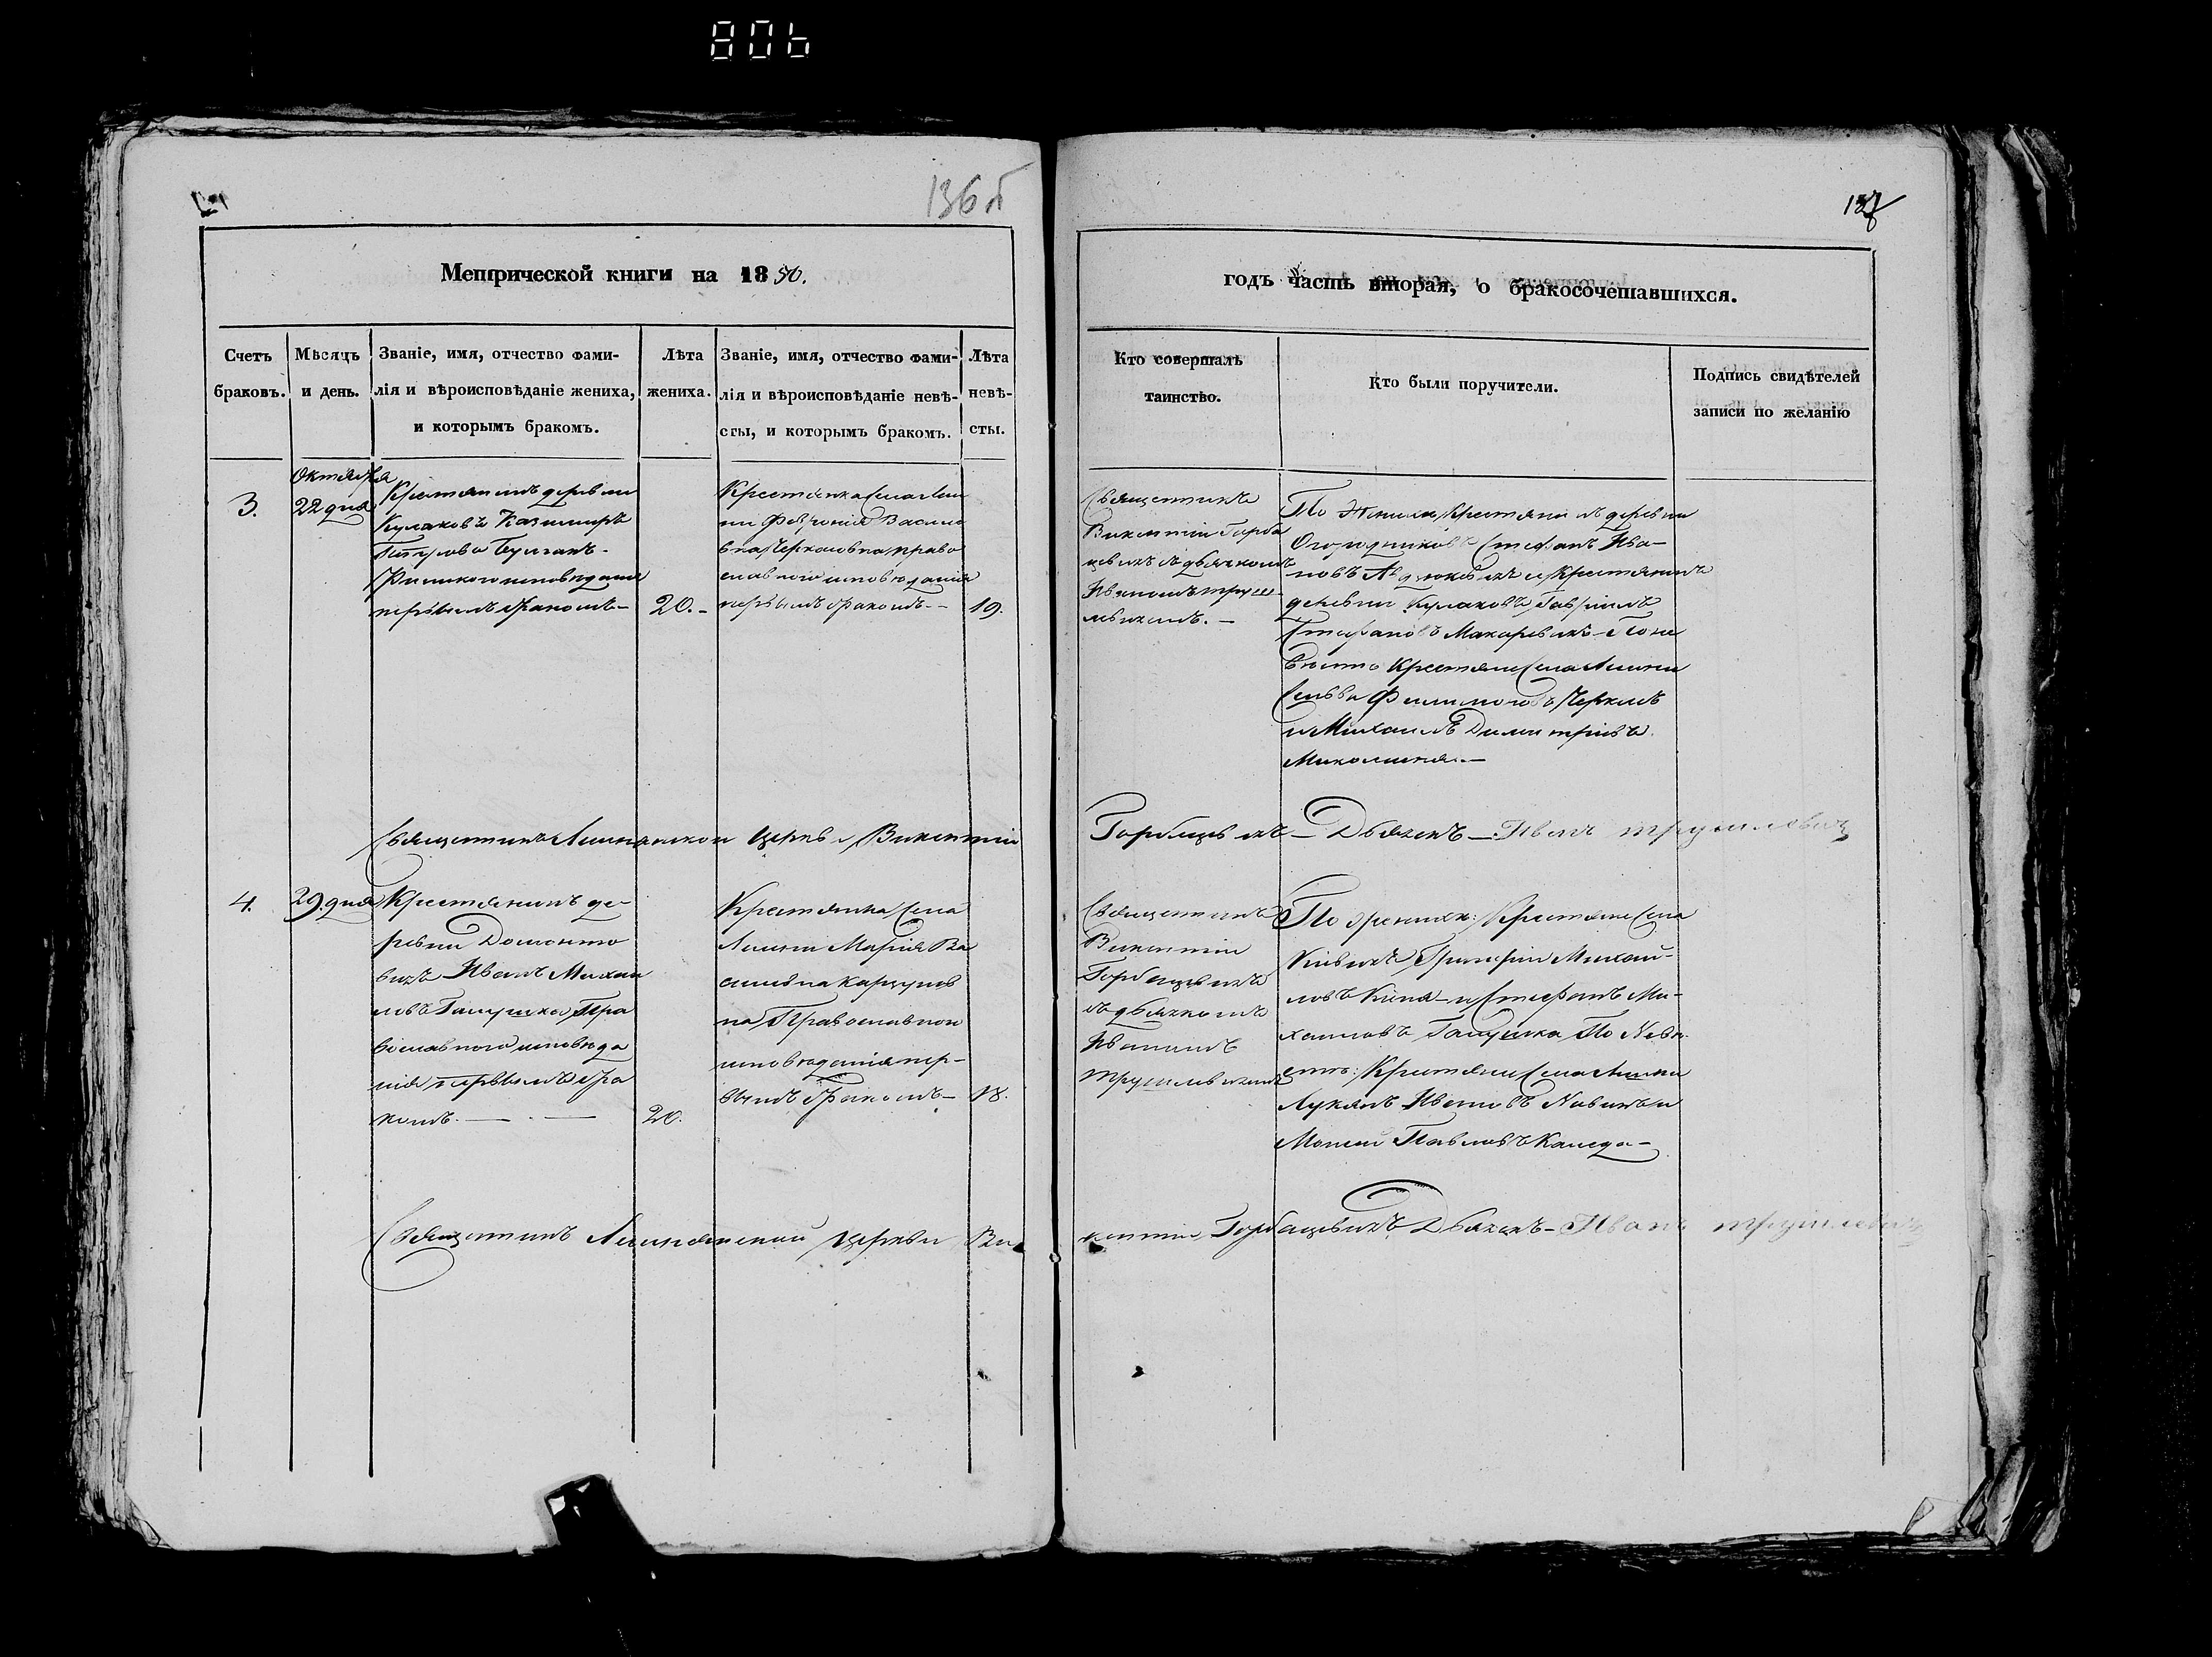 806
136 б
137
Метрической книги на 1850.
годъ часть вторая, о бракосочетавшихся.
Счетъ браковъ.
Мѣсяцъ и день.
Званіе, имя, отчество фами-
лія и вѣроисповѣданіе жениха,
и которымъ бракомъ.
Лѣта
жениха.
Званіе, имя, отчество фами-
лія и вѣроисповѣданіе невѣ-
сты, и которымъ бракомъ.
Лѣта
невѣ-
сты.
Кто совершалъ
таинство.
Кто были поручители.
Подпись свидѣтелей
записи по желанію
3.
Октября
22 дня
Крестьянинъ деревни
Кулаковъ Казимиръ
Римскаго исповѣданія
первымъ бракомъ-
20.-
Крестьянка села
Феврония Василь
православнаго исповѣданія
первымъ бракомъ-
19.
Священникъ
Викентій Горба
цевичь съ дьячкомъ
Иваномъ Труш
левичемъ.-
По женихѣ Крестьяне деревни
Огородниковъ Стефанъ Ива-
новъ и Крестьянинъ
деревни Кулаковъ Гавріилъ
Стефановъ Макаревичь- По не
вѣстѣ Крестьяне села
Филимоновъ
и Михаилъ Димитріевъ
Священникъ церкви Викентій
Горбацевичь- Дьячекъ- Иванъ Трушлевичъ
4.
29 дня
Крестьянинъ де
ревни Домонто
вичь Иванъ Михаи
ловъ Галушка Пра
вославнаго исповѣда
нія первымъ бра
комъ.-
20.
Крестьянка села
Марія Ва
сильевна
на Православнаго
исповѣданія пер-
вымъ бракомъ-
18.
Священникъ
Викентій
Горбацевичь
съ дьячкомъ
Иваномъ
Трушлевичемъ
По женихѣ: Крестьяне села
Григорій Михай-
ловъ и Стефанъ Ми-
хаиловъ Галушка По Невѣ
стѣ: Крестьяне села
Лукьянъ Ивановъ и
Моисей Павловъ Каледа-
Священникъ церкви Ви
кентій Горбацевичь Дьячекъ- Иванъ Трушлевичъ